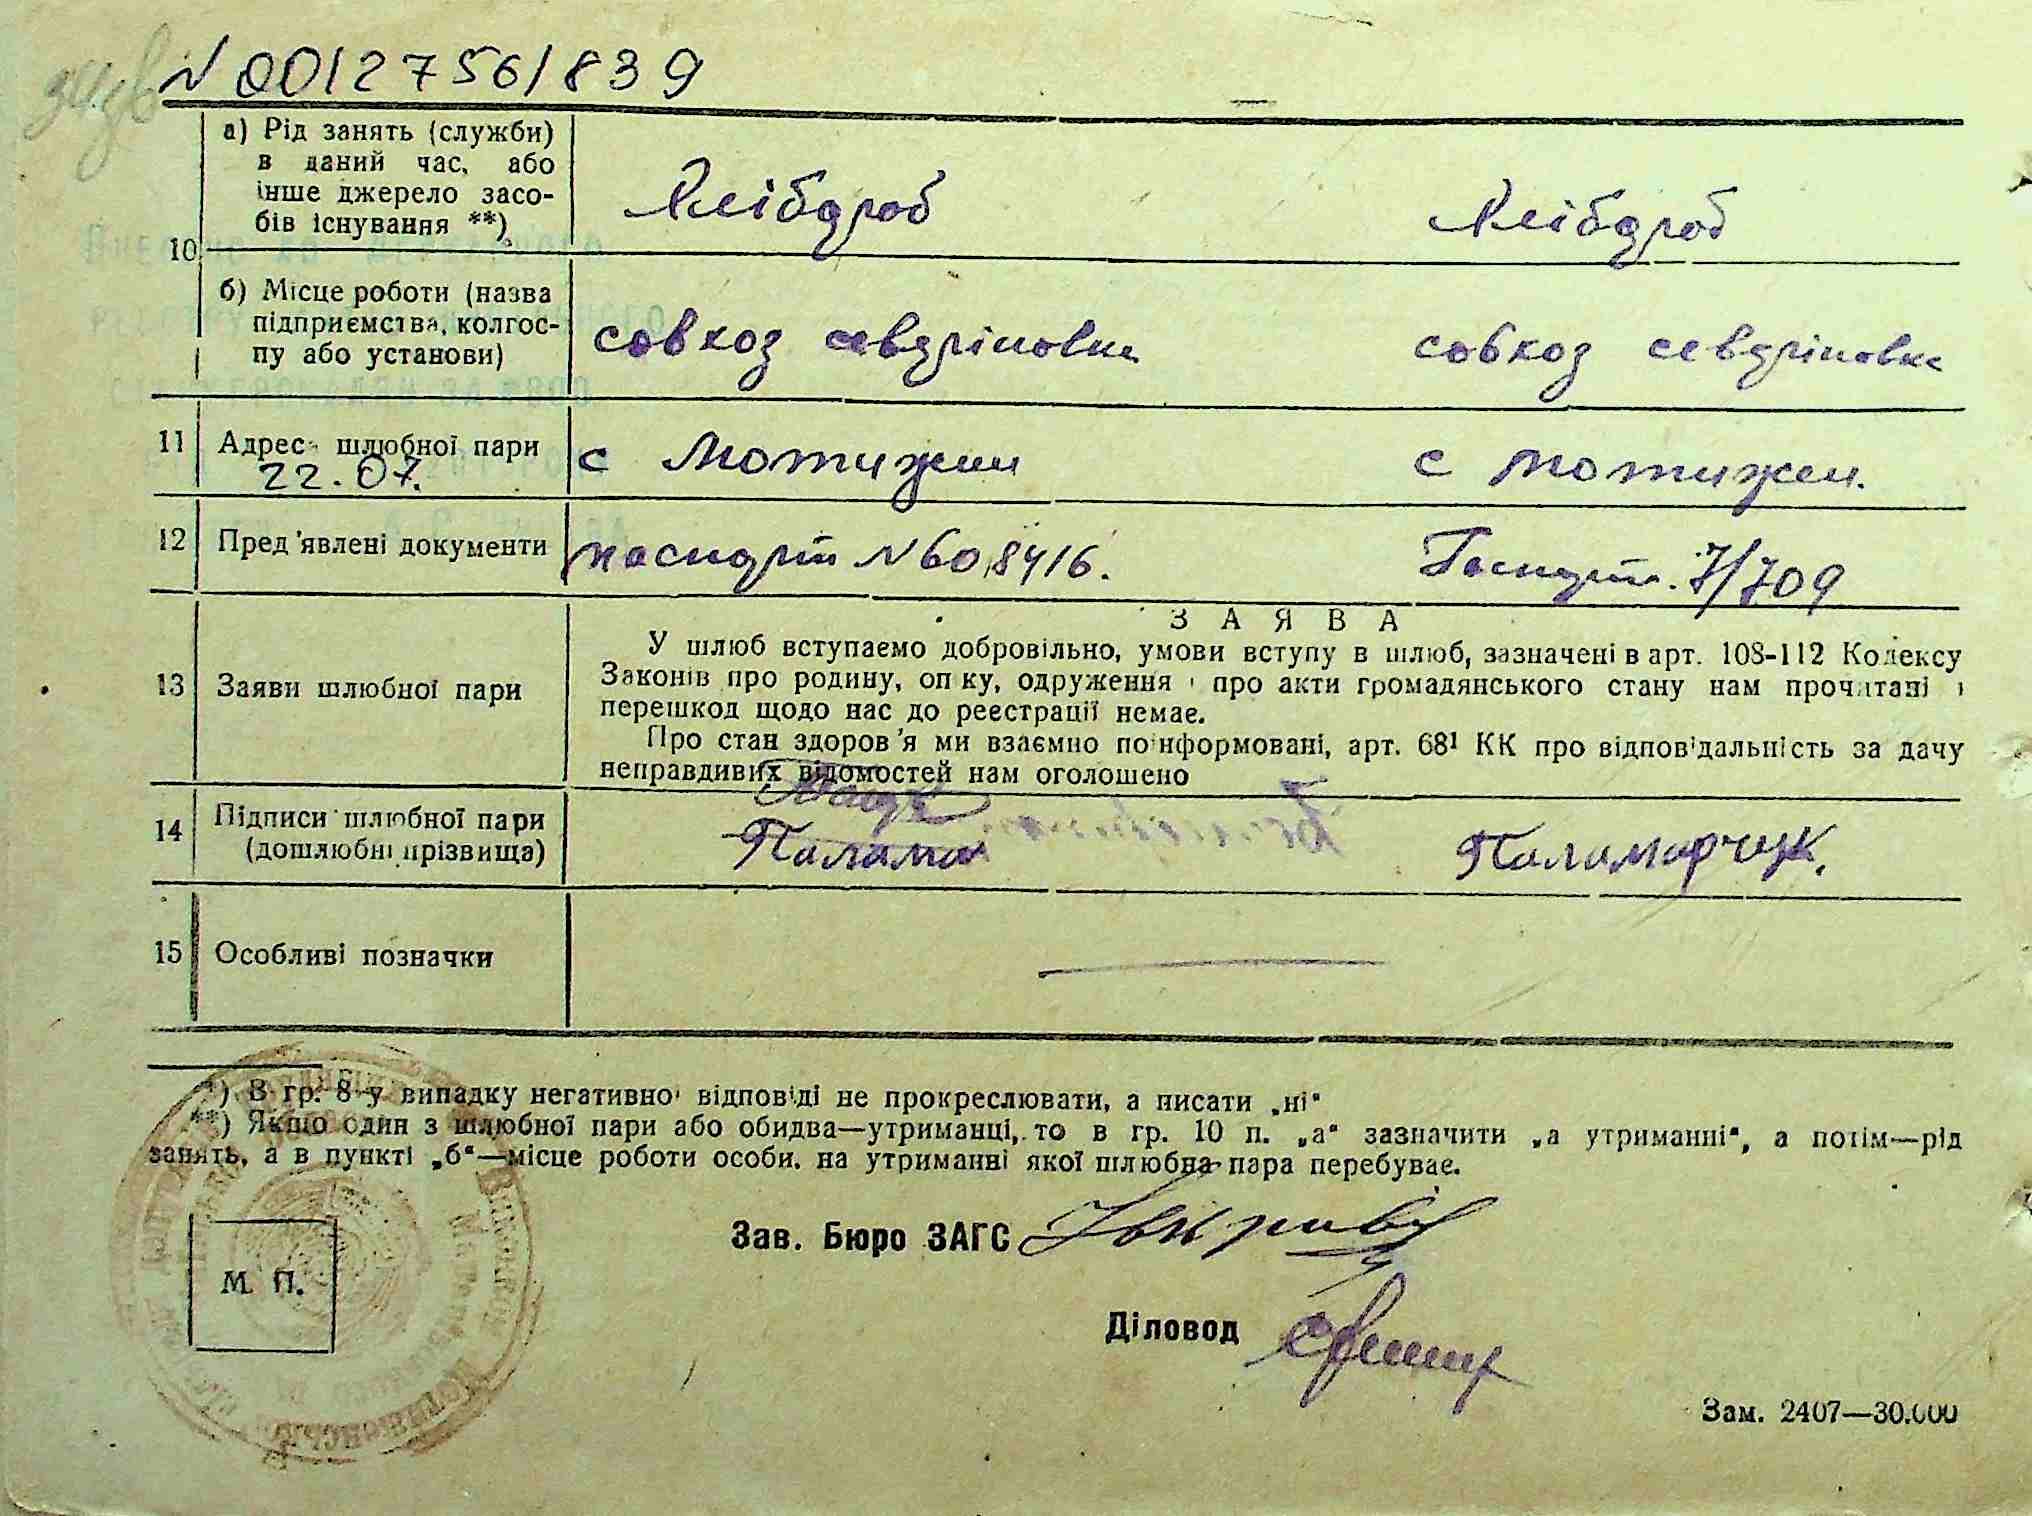 N 0012756/839
а) Рід занять (служби)
в даний час, або
інше джерело засо-
бів існування **)
Хлібороб Хлібороб
10
б) Місце роботи (назва
підприємства, колгос-
пу або установи)
совхоз совхоз
11 Адреса шлюбної пари с Мотижин с Мотижен.
22.07.
12 Пред'явлені документи паспорт N 608416. Паспорт. 7/709
ЗАЯВА
13 Заяви шлюбної пари
У шлюб вступаємо добровільно, умови вступу в шлюб, зазначені в арт. 108-112 Кодексу
Законів про родину, опіку, одруження і про акти громадянського стану нам прочитані і
перешкод щодо нас до реєстрації немає.
Про стан здоров'я ми взаємно поінформовані, арт. 68¹ КК про відповідальність за дачу
неправдивих відомостей нам оголошено
14 Підписи шлюбної пари
(дошлюбні прізвища)
Палама Паламарчук.
15 Особливі позначки
*) В гр. 8-у випадку негативної відповіді не прокреслювати, а писати „ні“
**) Якщо один з шлюбної пари або обидва—утриманці, то в гр. 10 п. „а“ зазначити „а утриманні“, а потім—рід
занять, а в пункті „б“—місце роботи особи, на утриманні якої шлюбна пара перебуває.
Зав. Бюро ЗАГС
М. П.
Діловод
Зам. 2407—30.000